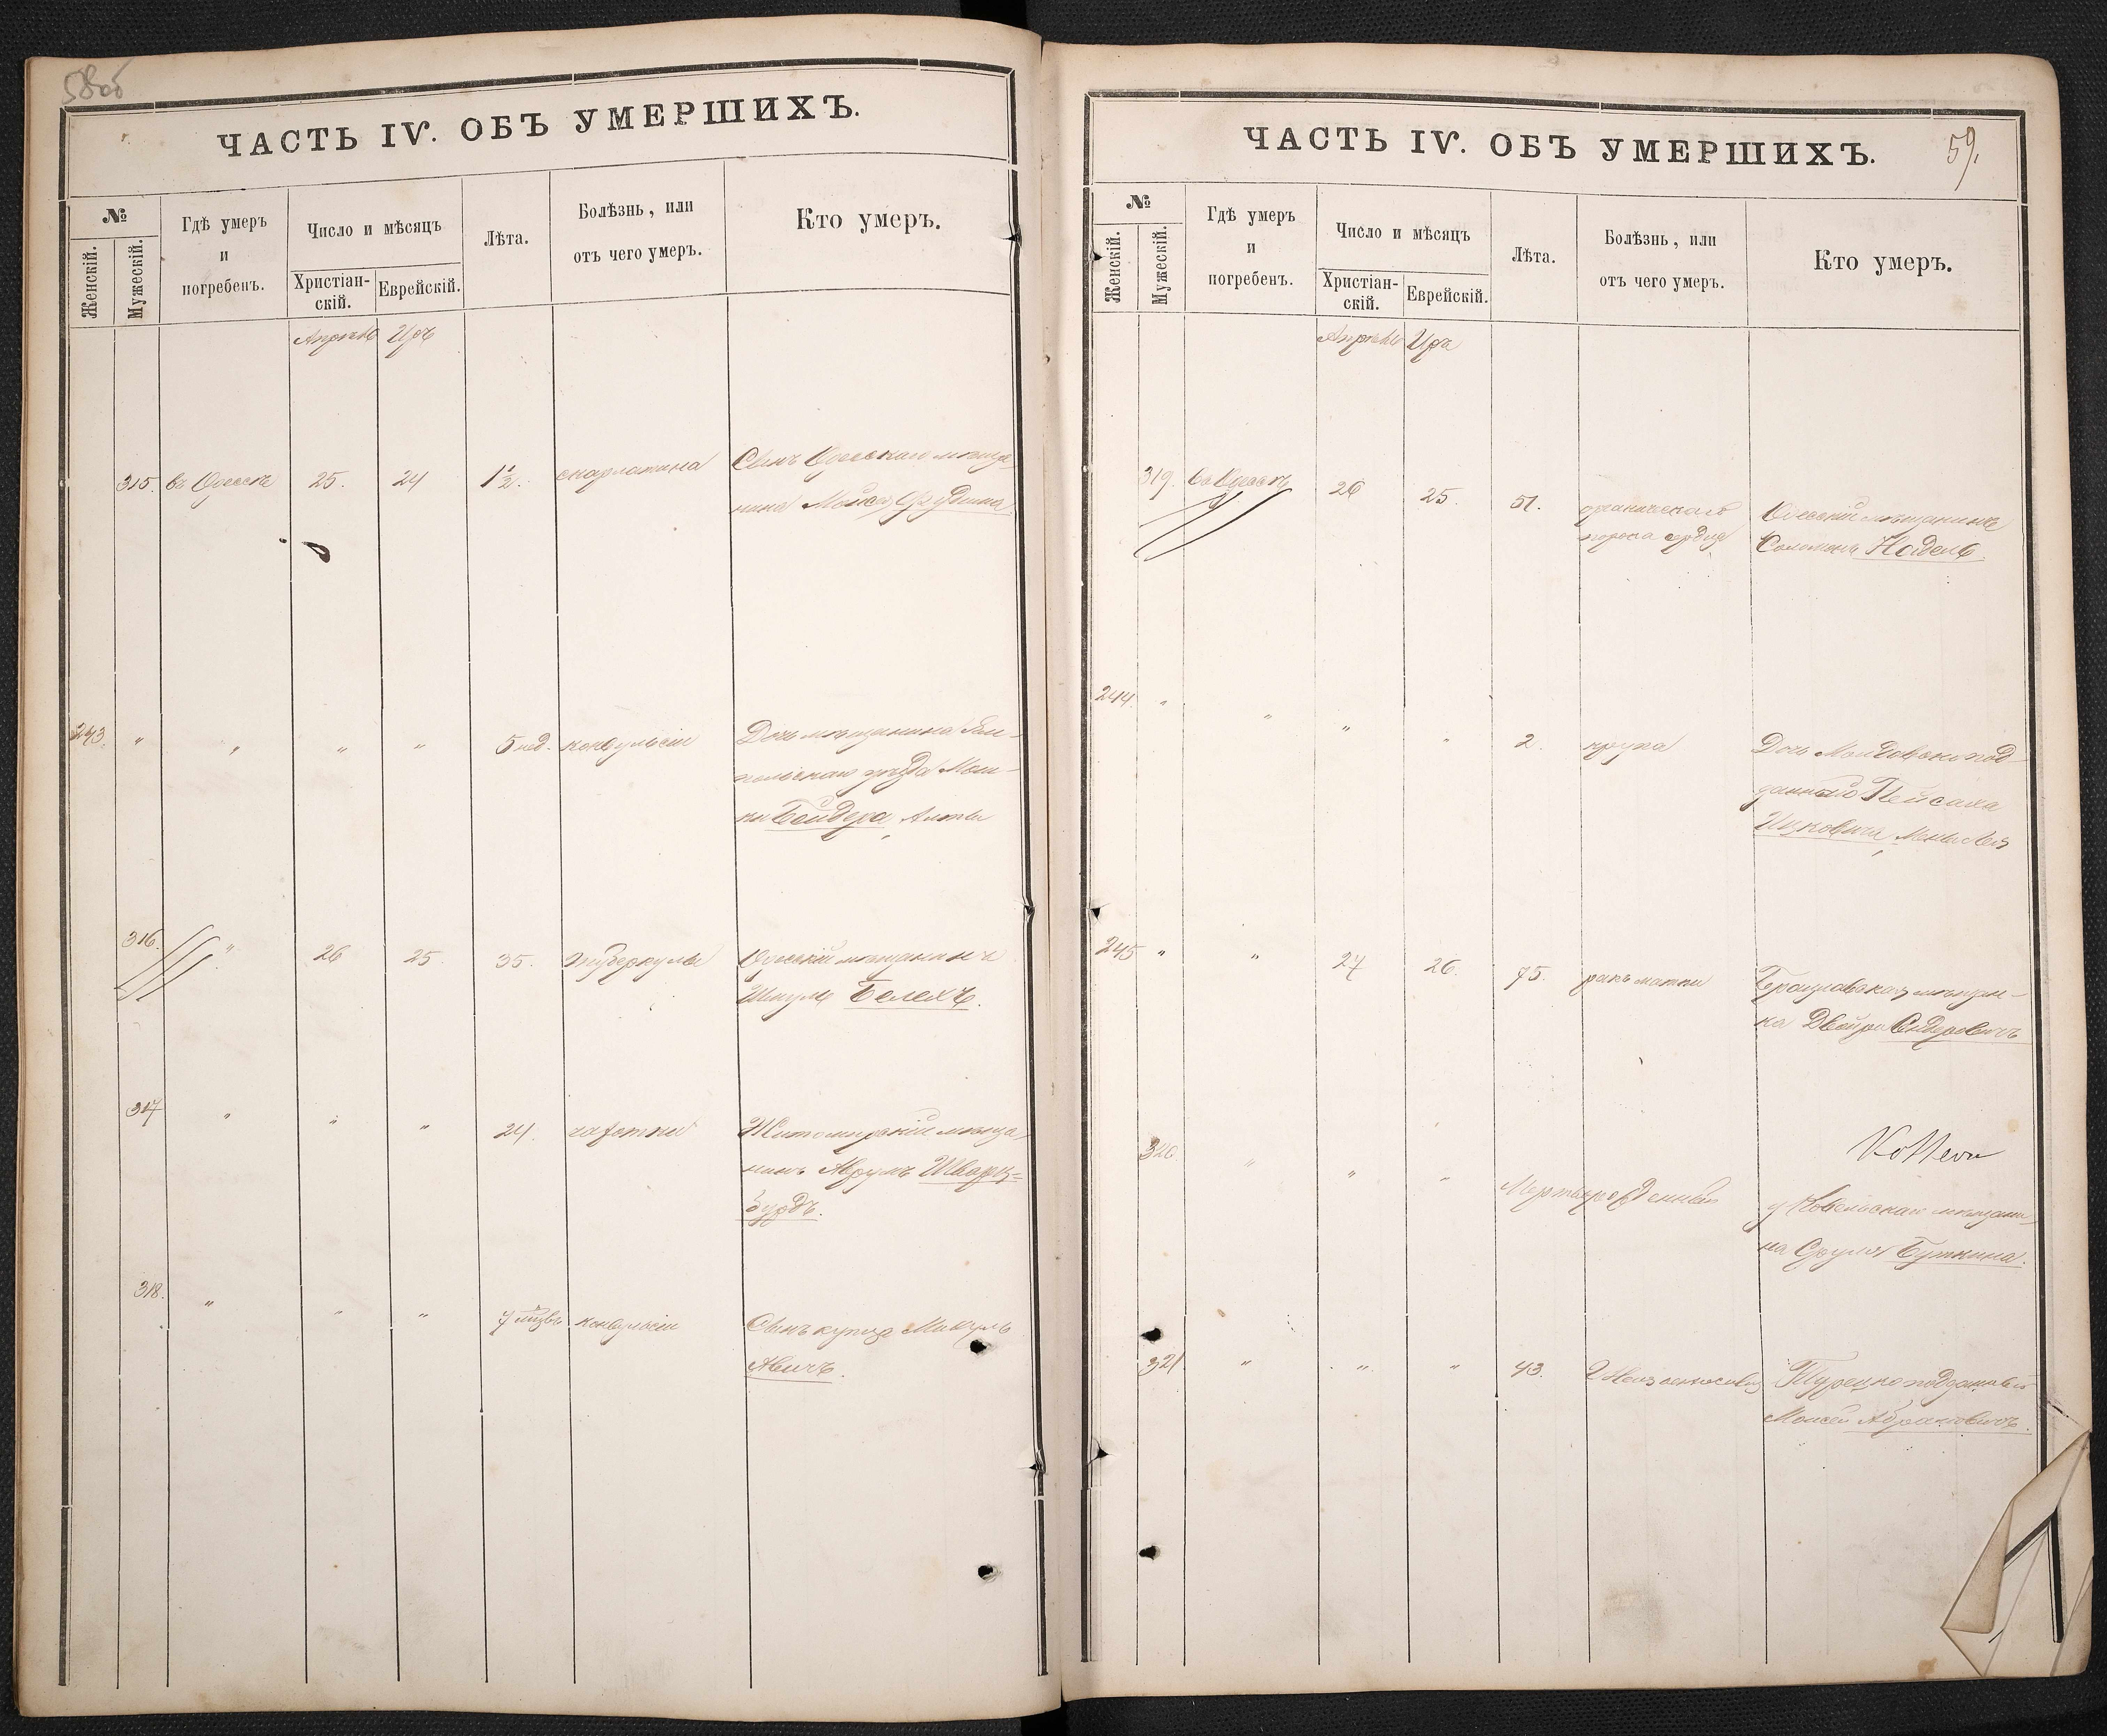 58об
ЧАСТЬ IV. ОБЪ УМЕРШИХЪ.
№
Женскій.
Мужескій.
Гдѣ умеръ
и
погребенъ.
Число и мѣсяцъ
Христіан-
скій.
Еврейскій.
Лѣта.
Болѣзнь, или
отъ чего умеръ.
Кто умеръ.
Апрель Иръ
315. въ Одессѣ 25. 24 1½. скарлатина Сынъ Одесскаго мѣща-
нина
243. " " " " 5 нед. конвульсіи Дочь мѣщанина Ям-
польскаго уѣзда Мош-
ки Бондера,
316. " 26 25. 35. туберкулы Одесскій мѣщанинъ
Шмуль Белехъ.
317 " " " 24. чахотки Житомирскій мѣща-
нинъ Аврумъ Шварц=
бурдъ.
318. " " " 7 конвульсіи Сынъ купца
Авичъ.
ЧАСТЬ IV. ОБЪ УМЕРШИХЪ.
59.
№
Женскій.
Мужескій.
Гдѣ умеръ
и
погребенъ.
Число и мѣсяцъ
Христіан-
скій.
Еврейскій.
Лѣта.
Болѣзнь, или
отъ чего умеръ.
Кто умеръ.
Апрель Иръ
319. въ Одессѣ 26 25. 51. органическаго
порока сердца
Одесскій мѣщанинъ
Соломонъ Нодель.
244. " " " " 2. крупа Дочь Молдавскоподд
даннаго Пейсаха
Ицковича,
245 " " 27 26. 75. ракъ матки Брацлавская мѣщан-
ка Двойра Сидеровичъ
320. " " " Мертворожденный
у Ковельскаго мѣщани-
на Сруля Буткина.
321 " " " 43. Турецкоподданный
Моисей Абрамовичъ.